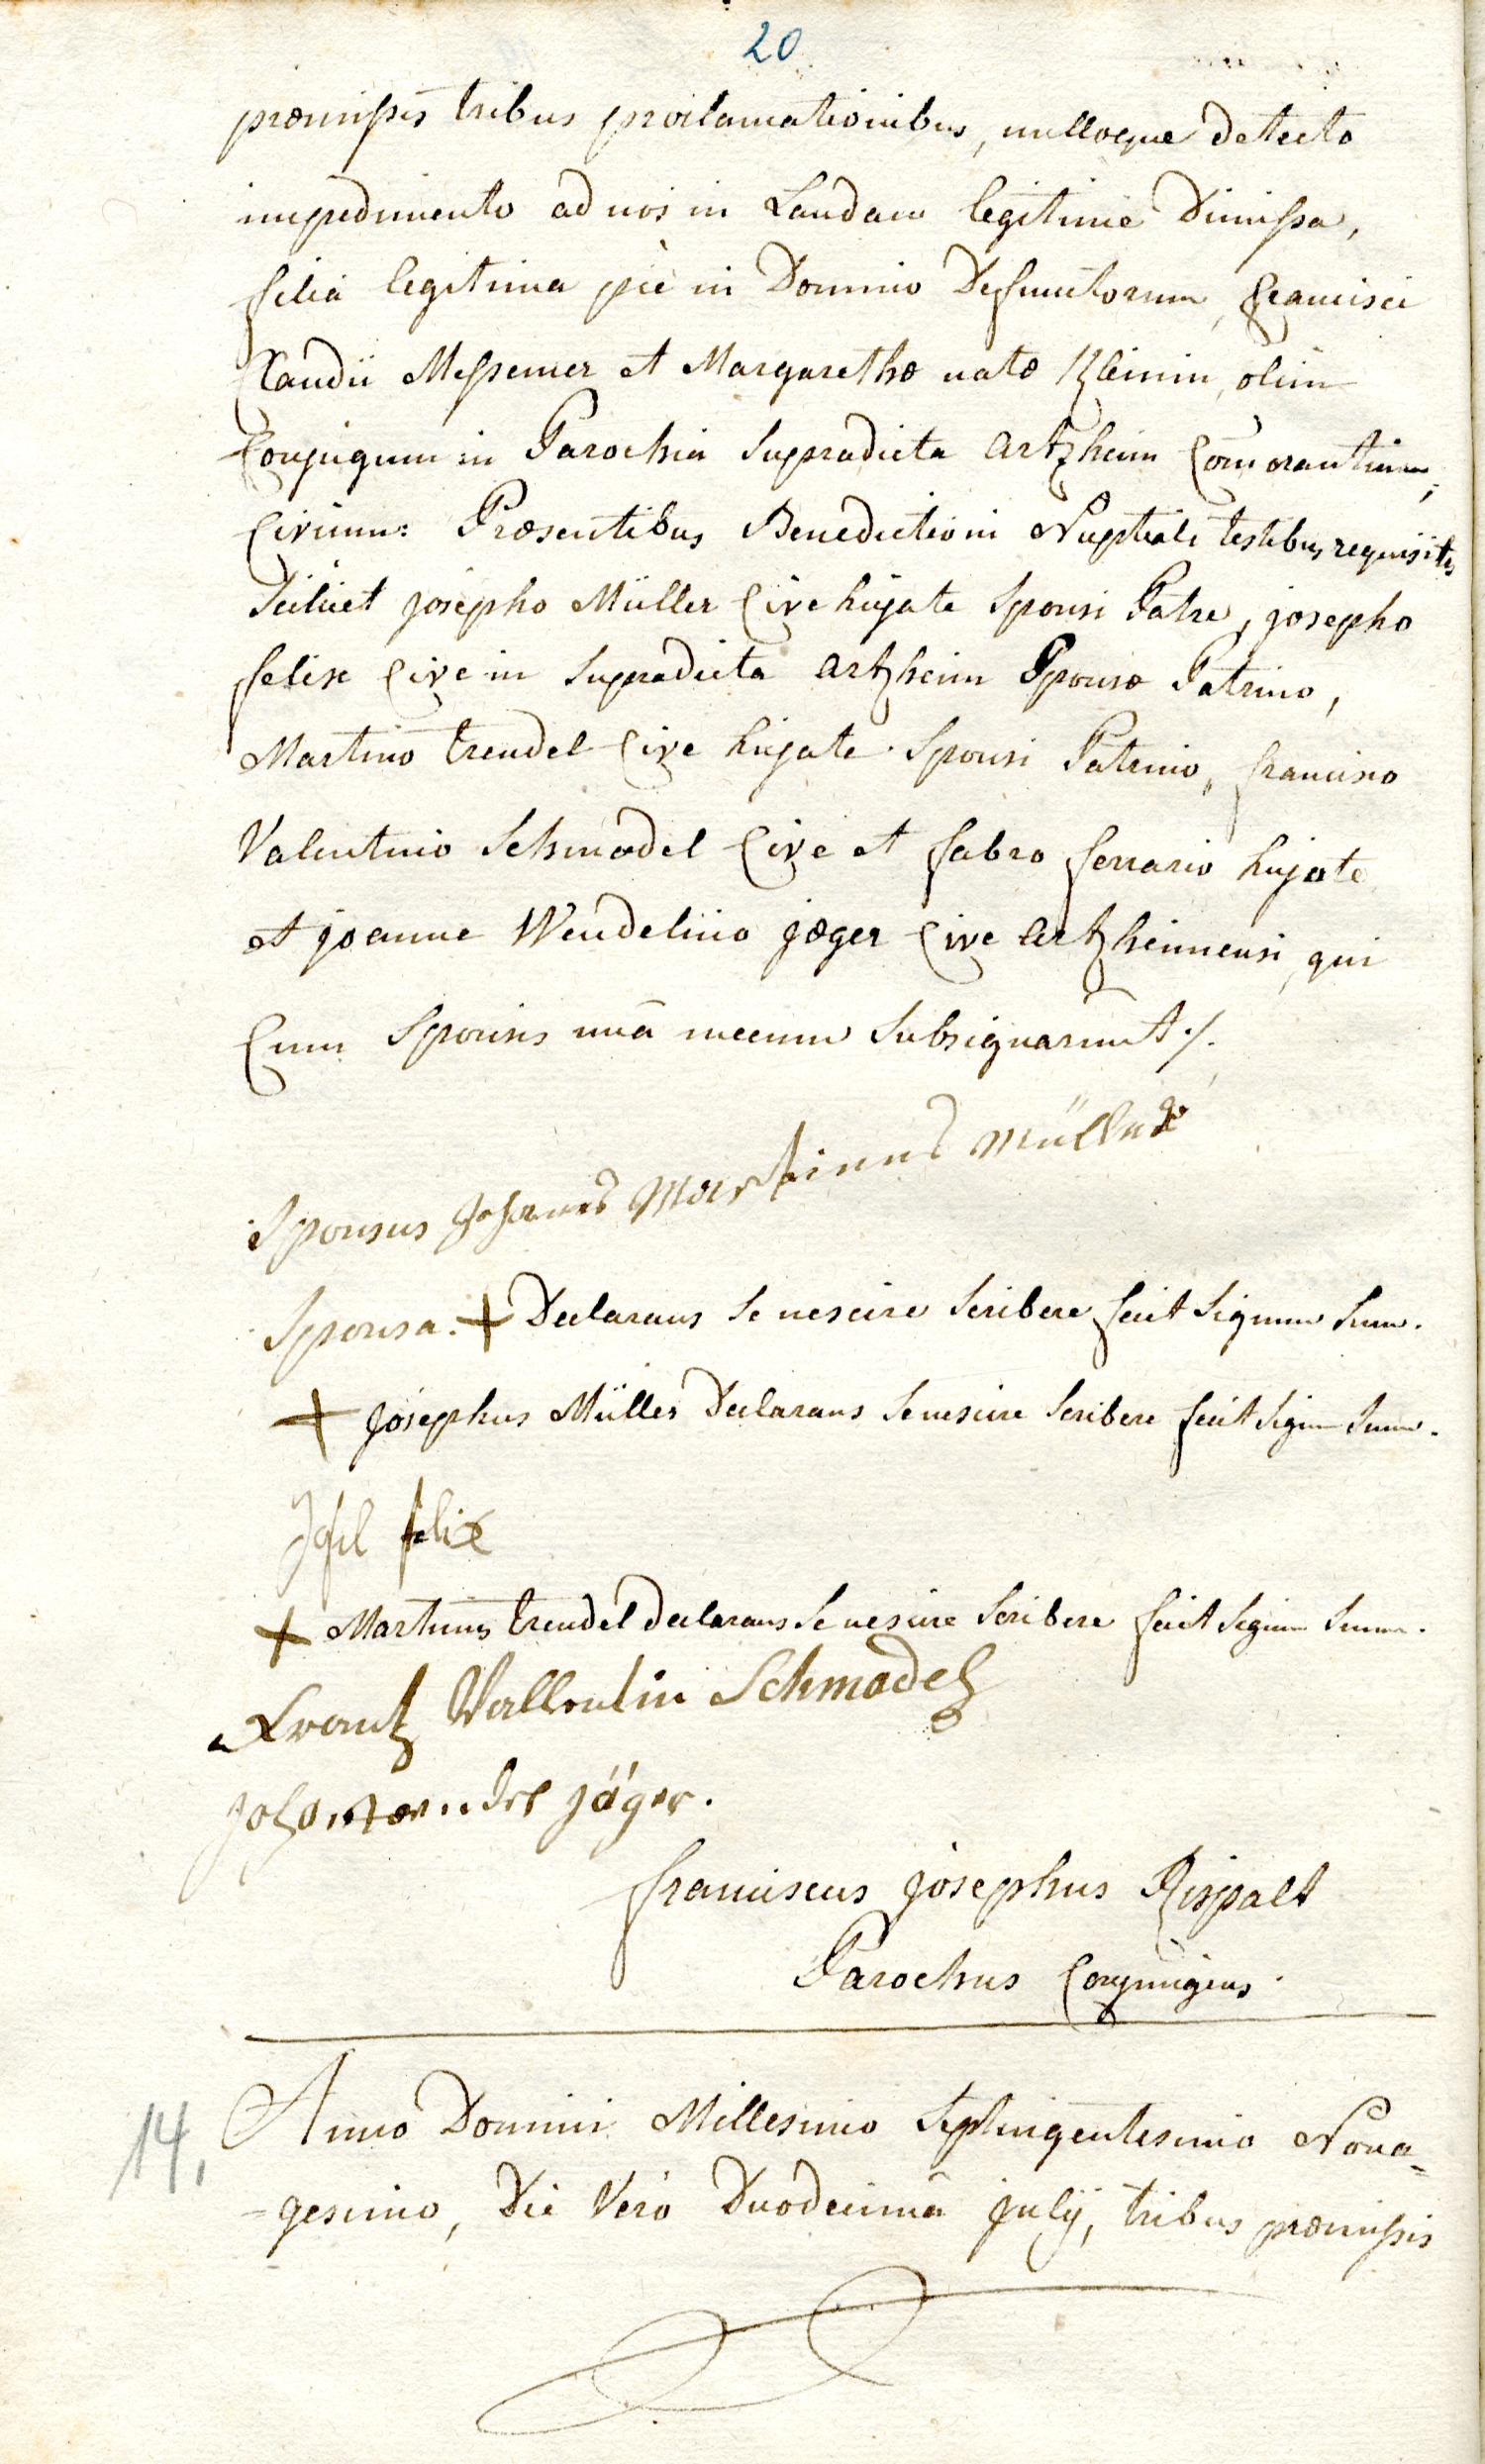 20
præmissis tribus proclamationibus, nulloque detecto
impedimento ad nos in Landau legitimè Dimissa,
filia legitima piè in Domino Defunctorum, francisci
Claudii Messemer et Margarethæ natæ Kleinin, olim
Conjugum in Parochia Supradicta artzheim Com̄orantium,
Civium: Præsentibus Benedictioni Nuptiali testibus requisitis
Scilicet josepho Müller Cive hujate Sponsi Patre, josepho
felix Cive in Supradicta artzheim Sponsæ Patrino,
Martino trendel Cive hujate Sponsi Patrino, francisco
Valentino Schmadel Cive et fabro ferrario hujate
et joanne Wendelino jæger Cive artzheimensi, qui
Cum Sponsis unâ mecum Subsignarunt ./.
Sponsus Johannes Martinus Müller
Sponsa. + Declarans Se nescire Scribere fecit Signum Suum.
+ josephus Müller Declarans Se nescire Scribere fecit Signum Suum.
Josel felix
+ Martinus trendel declarans Se nescire Scribere fecit Signum Suum.
Frantz Vallentin Schmadel
jäger.
franciscus josephus Rispalt
Parochus Conjungens.
14, Anno Domini Millesimo Septingentesimo Nona=
=gesimo, Die Verò Duodecimâ julÿ, tribus præmissis